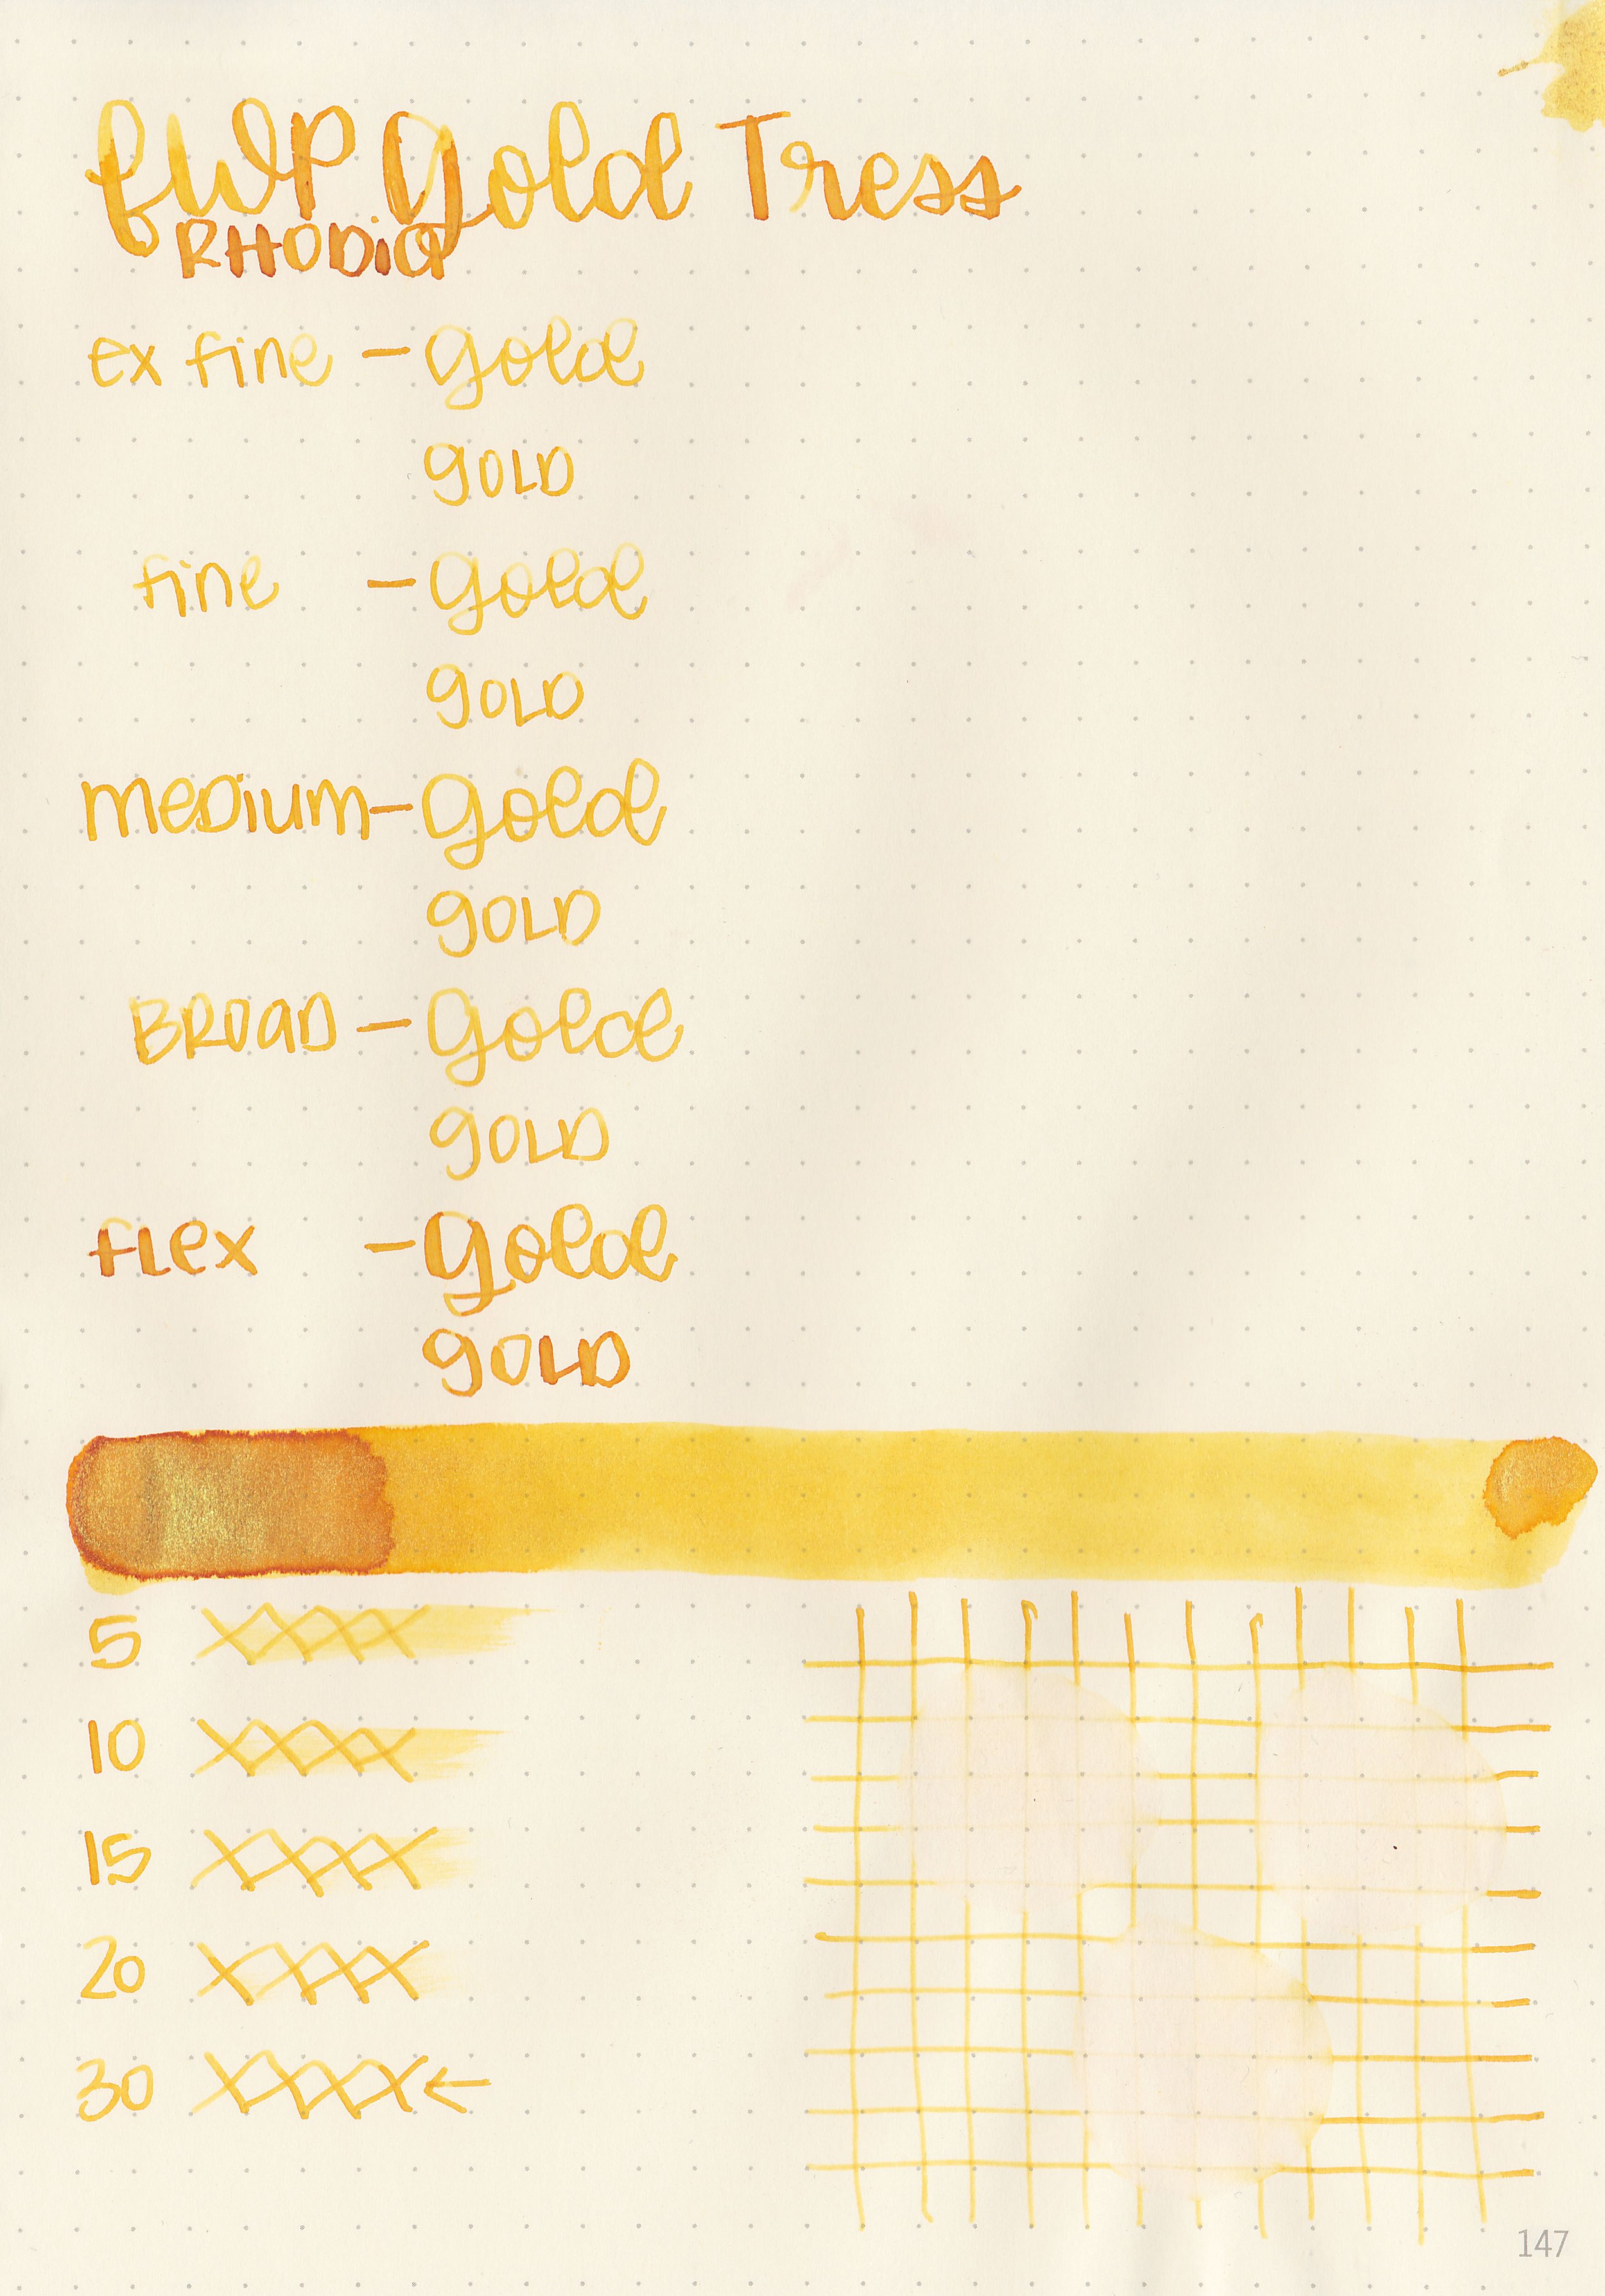 FWP Gold Tress
RHODIA
Ex fine - Gold
GOLD
fine - Gold
GOLD
Medium - Gold
GOLD
BROAD - Gold
GOLD
FLEX - Gold
GOLD
5 XXXX
10 XXXX
15 XXXX
20 XXXX
30 XXXX ←
147